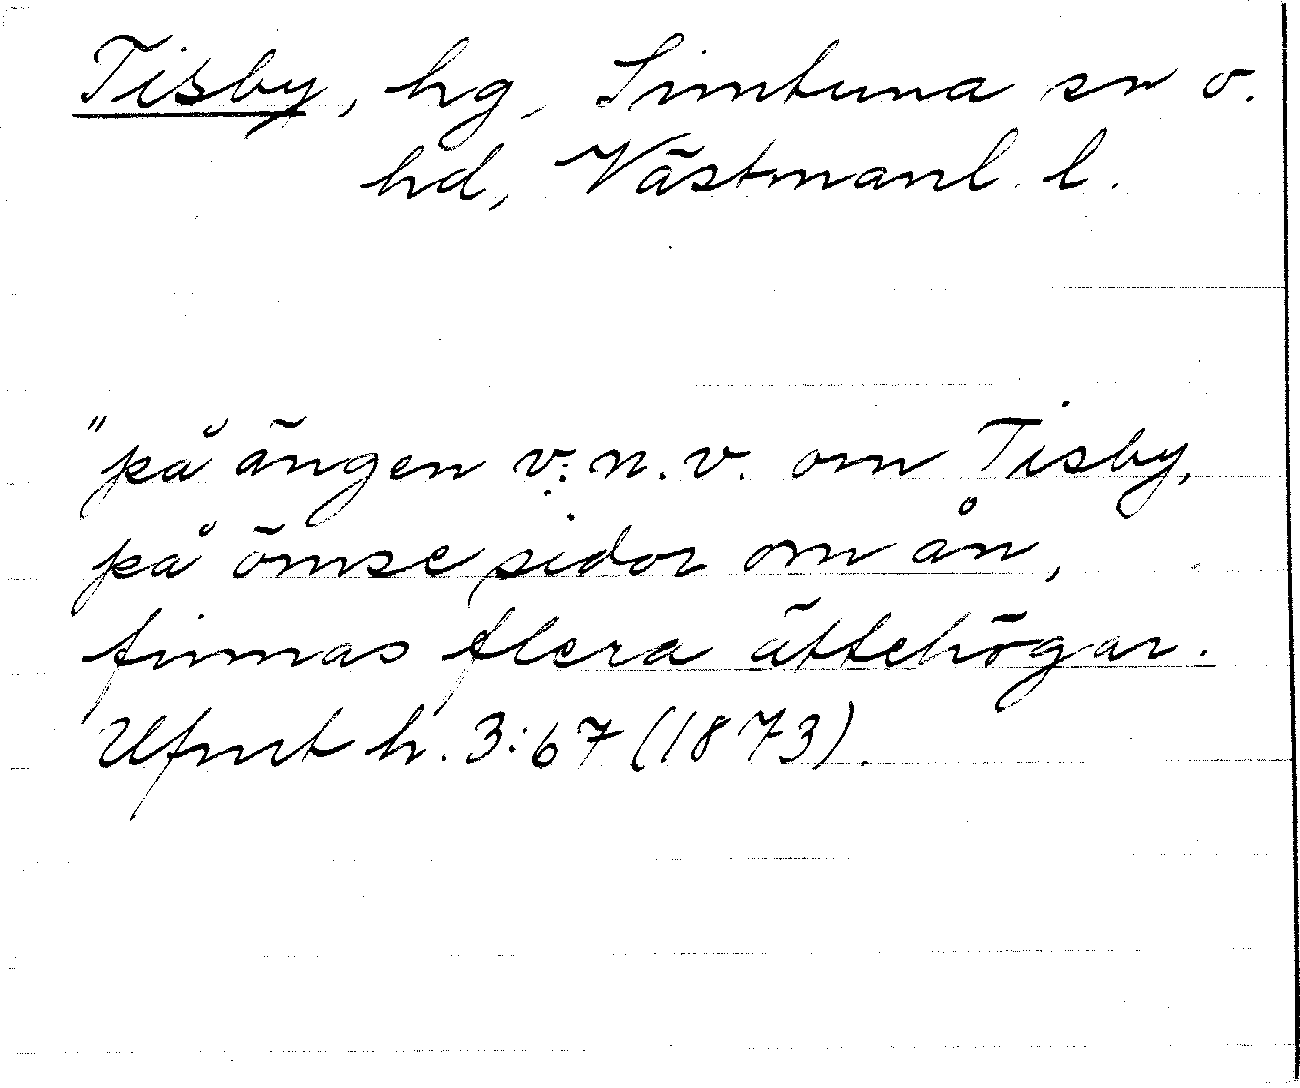 Tisby, hg, Simtuna sn o.
hd, Västmanl. l.
"på ängen v. n. v. om Tisby,
på ömse sidor om ån,
finnas flera ättehögar.
Ufmt h. 3:67 (1873).